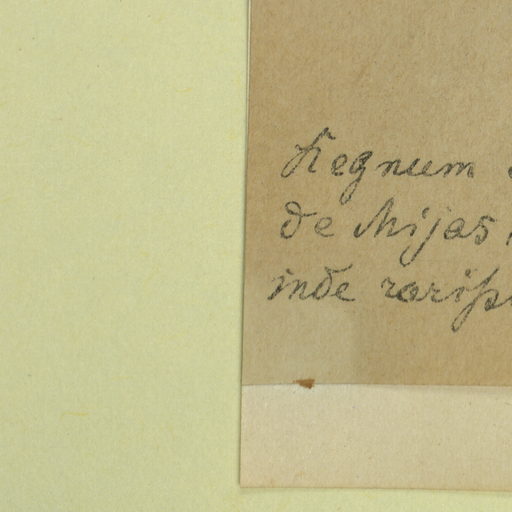 Regnum
de Mijas
inde rariss